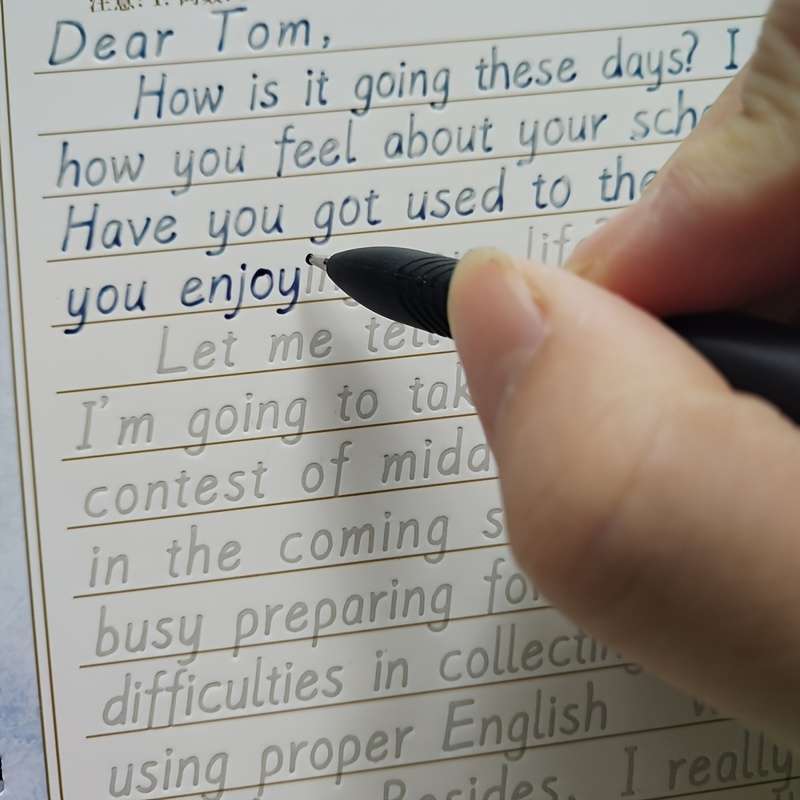 注意: 1.
Dear Tom,
How is it going these days? I
how you feel about your
Have you got used to the
you enjoying life?
Let me tell
I'm going to
contest of
in the coming
busy preparing for
difficulties in collecting
using proper English
Besides, I really